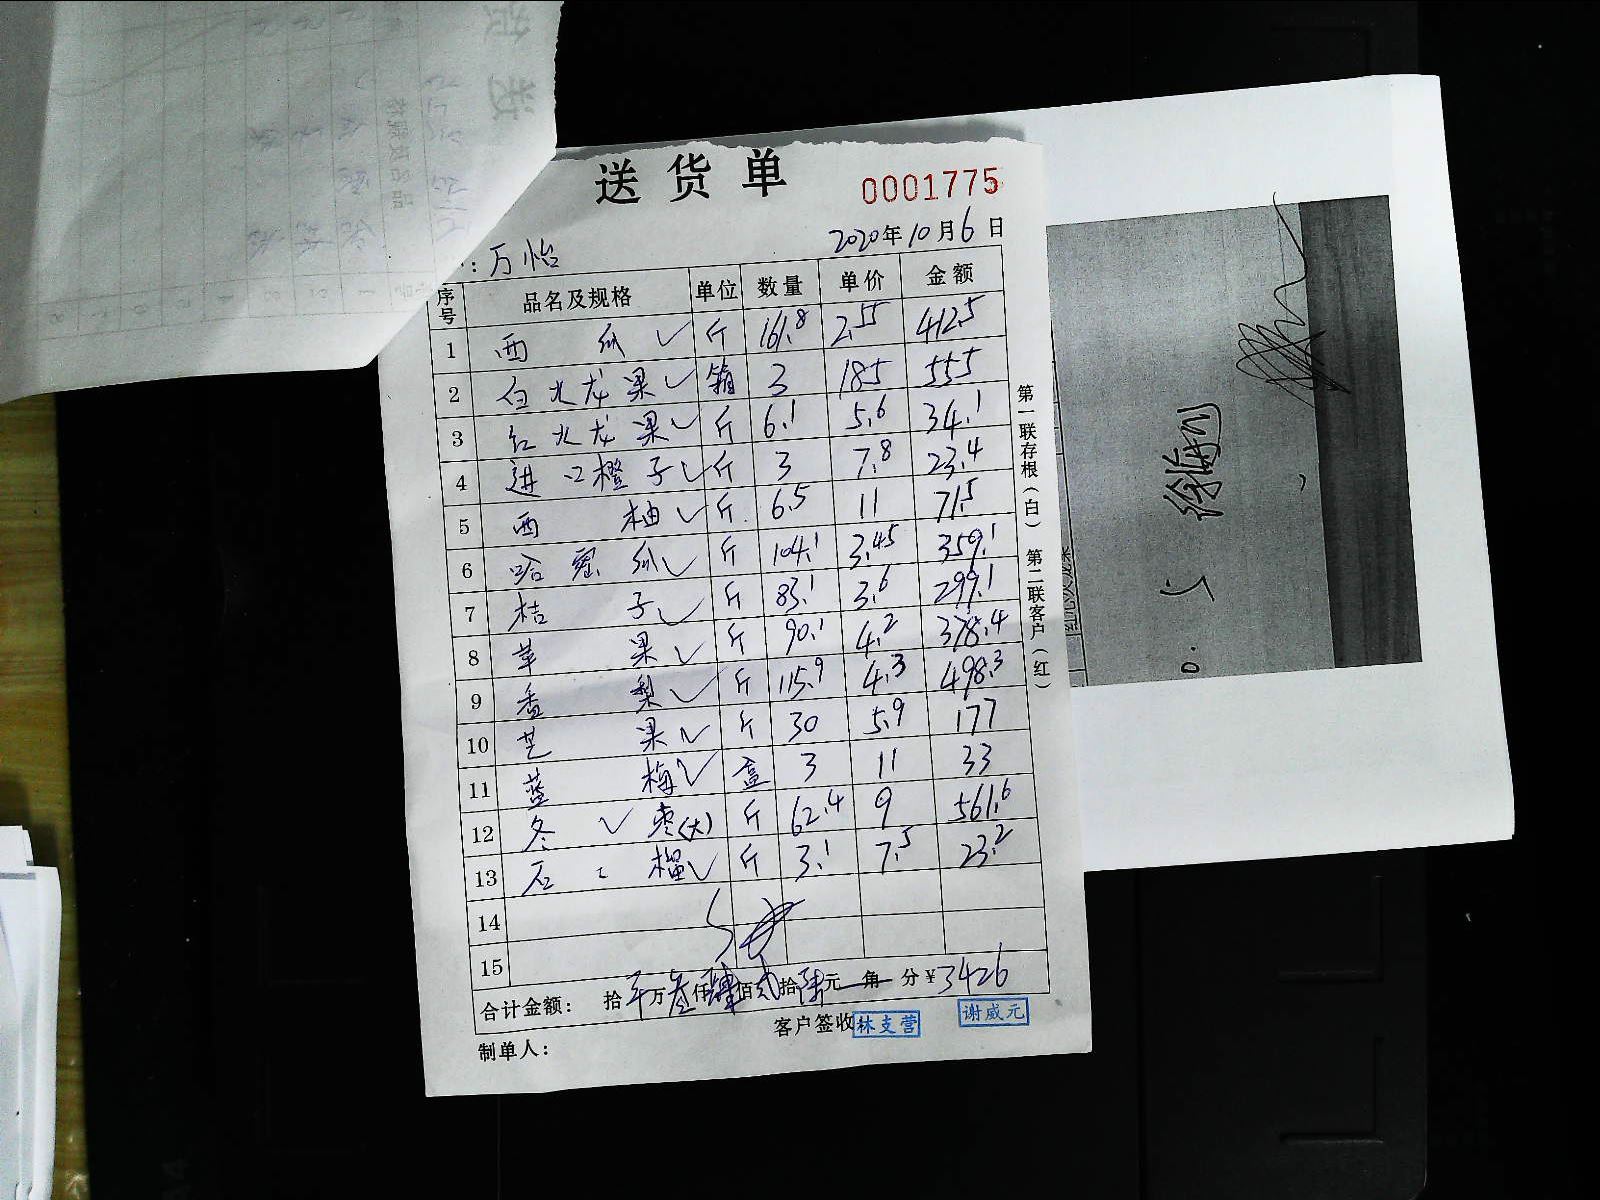 送货单 0001775
：万怡 2020年10月6日
序号 品名及规格 单位 数量 单价 金额
1 西瓜✓ 斤 161.8 2.55 412.5
2 白火龙果✓ 箱 3 185 555
3 红火龙果✓ 斤 6.1 5.6 34.1
4 进口橙子✓ 斤 3 7.8 23.4
5 西柚✓ 斤 6.5 11 71.5
6 哈密瓜✓ 斤 104.1 3.45 359.1
7 桔子✓ 斤 83.1 3.6 299.1
8 苹果✓ 斤 90.1 4.2 378.4
9 香梨✓ 斤 115.9 4.3 498.3
10 芒果✓ 斤 30 5.9 177
11 蓝梅✓ 盒 3 11 33
12 冬✓枣(大) 斤 62.4 9 561.6
13 石榴✓ 斤 3.1 7.5 23.2
14
15
合计金额: 拾万叁仟肆佰贰拾陆元角分¥3426
客户签收 林支营 谢威元
制单人:
第一联存根(白) 第二联客户(红)